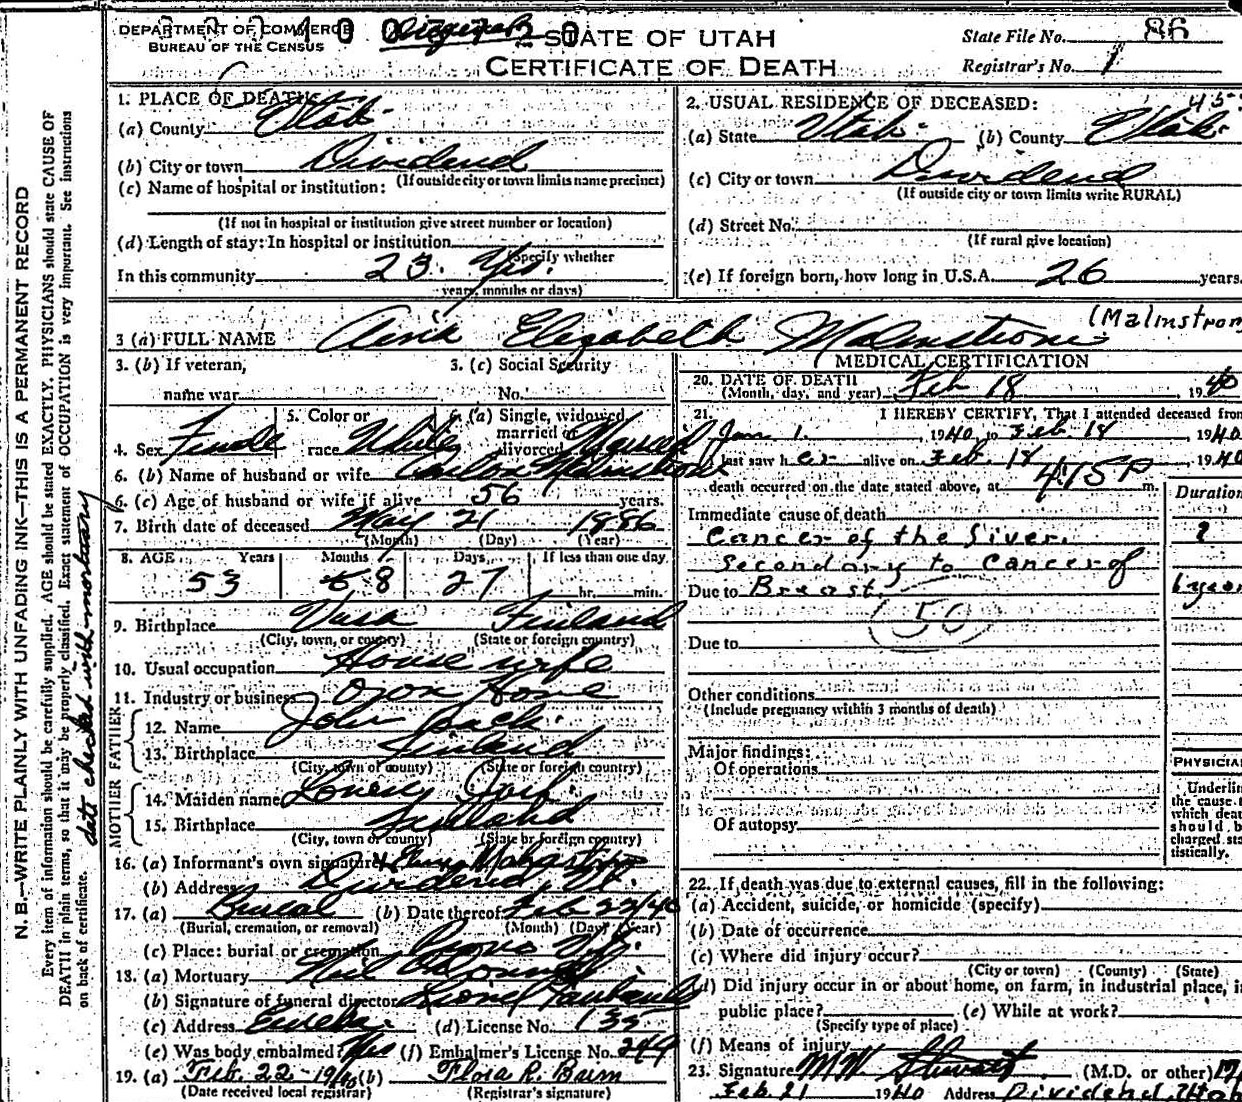 DEPARTMENT OF COMMERCE
BUREAU OF THE CENSUS
STATE OF UTAH
CERTIFICATE OF DEATH
State File No. 86
Registrar's No. 1
1. PLACE OF DEATH:
(a) County Utah
(b) City or town Dividend
(If outside city or town limits name precinct)
(c) Name of hospital or institution:
(If not in hospital or institution give street number or location)
(d) Length of stay: In hospital or institution
(Specify whether
In this community 23 Yrs.
years, months or days)
2. USUAL RESIDENCE OF DECEASED:
(a) State Utah (b) County Utah
(c) City or town Dividend
(If outside city or town limits write RURAL)
(d) Street No.
(If rural give location)
(e) If foreign born, how long in U.S.A. 26 years.
3 (a) FULL NAME Elizabeth Malmstrom (Malmstrom
3. (b) If veteran, 3. (c) Social Security
name war No.
4. Sex Female 5. Color or race White 6. (a) Single, widowed married or divorced Married
6. (b) Name of husband or wife Malmstrom
6. (c) Age of husband or wife if alive 56 years.
7. Birth date of deceased May 21 1886
(Month) (Day) (Year)
8. AGE Years Months Days If less than one day
53 8 27 hr. min.
9. Birthplace Vasa Finland
(City, town, or county) (State or foreign country)
10. Usual occupation House wife
11. Industry or business Own Home
FATHER
12. Name John Back
13. Birthplace Finland
(City, town of county) (State or foreign country)
MOTHER
14. Maiden name
15. Birthplace Finland
(City, town or county) (State or foreign country)
16. (a) Informant's own signature
(b) Address Dividend, Ut.
17. (a) Burial (b) Date thereof Feb 22/40
(Burial, cremation, or removal) (Month) (Day) (Year)
(c) Place: burial or cremation Provo Ut.
18. (a) Mortuary
(b) Signature of funeral director
(c) Address Eureka (d) License No. 135
(e) Was body embalmed? Yes (f) Embalmer's License No. 249
19. (a) Feb. 22-1940 (b) Flora R. Baum
(Date received local registrar) (Registrar's signature)
MEDICAL CERTIFICATION
20. DATE OF DEATH Feb 18 1940
(Month, day, and year)
21. I HEREBY CERTIFY, That I attended deceased from
Jan 1. 1940, to Feb. 18, 1940
last saw her alive on Feb. 18, 1940
death occurred on the date stated above, at 4:15 P m.
Duration
Immediate cause of death
Cancer of the Liver.
Secondary to Cancer of
Due to Breast.
50
Due to
Other conditions
(Include pregnancy within 3 months of death)
Major findings:
Of operations
Of autopsy
PHYSICIAN
Underline
the cause t
which deat
should b
charged sta
tistically.
22. If death was due to external causes, fill in the following:
(a) Accident, suicide, or homicide (specify)
(b) Date of occurrence
(c) Where did injury occur?
(City or town) (County) (State)
(d) Did injury occur in or about home, on farm, in industrial place, in
public place? (e) While at work?
(Specify type of place)
(f) Means of injury
23. Signature M W Stewart (M.D. or other)
Feb 21 1940 Address Dividend, Utah
N. B.—WRITE PLAINLY WITH UNFADING INK—THIS IS A PERMANENT RECORD
Every item of information should be carefully supplied. AGE should be stated EXACTLY. PHYSICIANS should state CAUSE OF
DEATH in plain terms, so that it may be properly classified. Exact statement of OCCUPATION is very important. See instructions
on back of certificate.
date checked with mortuary